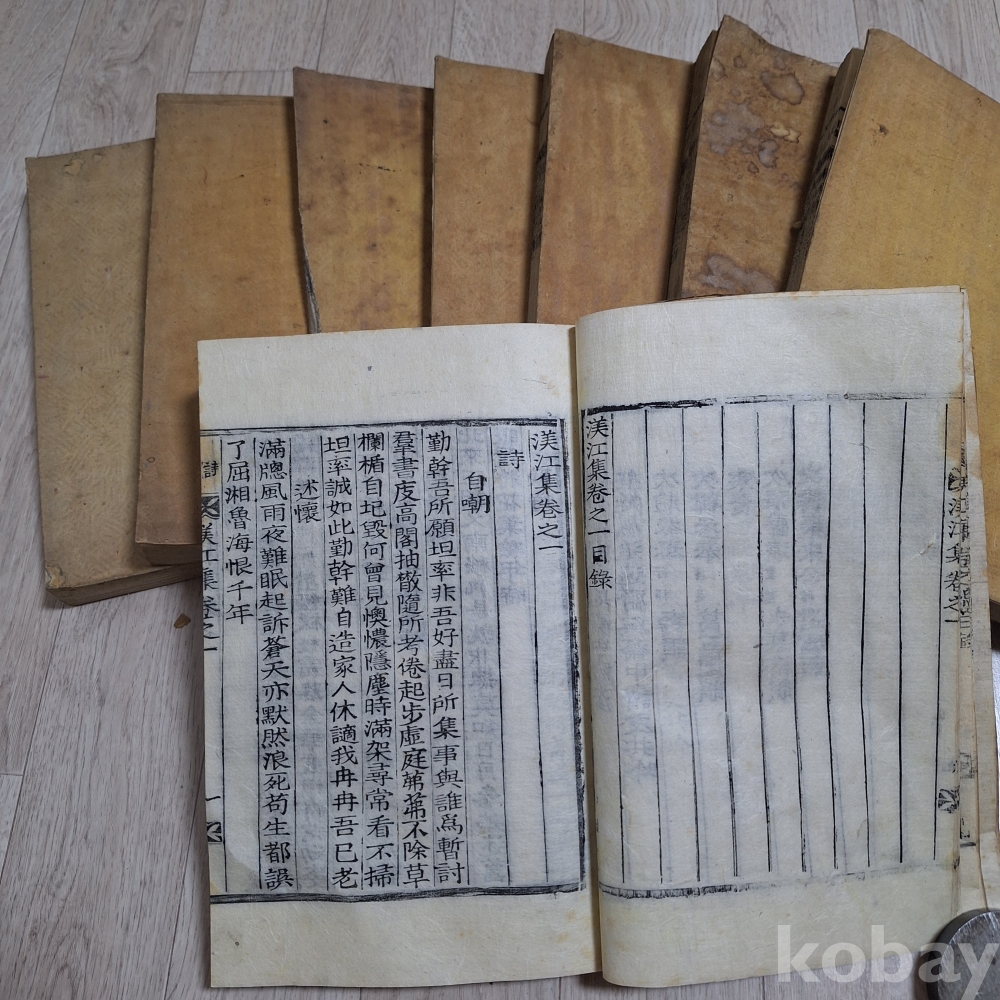 渼江集卷之一
渼江集卷之一目錄
渼江集卷之一
詩
自嘲
勤幹吾所願坦率非吾好盡日所集事與誰爲暫討
羣書庋高閣抽撤隨所考倦起步虛庭茀茀不除草
欄楯自圮毀何曾見懊憹隱塵時滿架尋常看不掃
坦率誠如此勤幹難自造家人休謫我冉冉吾已老
述懷
滿牕風雨夜難眠起訴蒼天亦默然浪死苟生都誤
了屈湘魯海恨千年
詩 渼江集卷之一 一
kobay